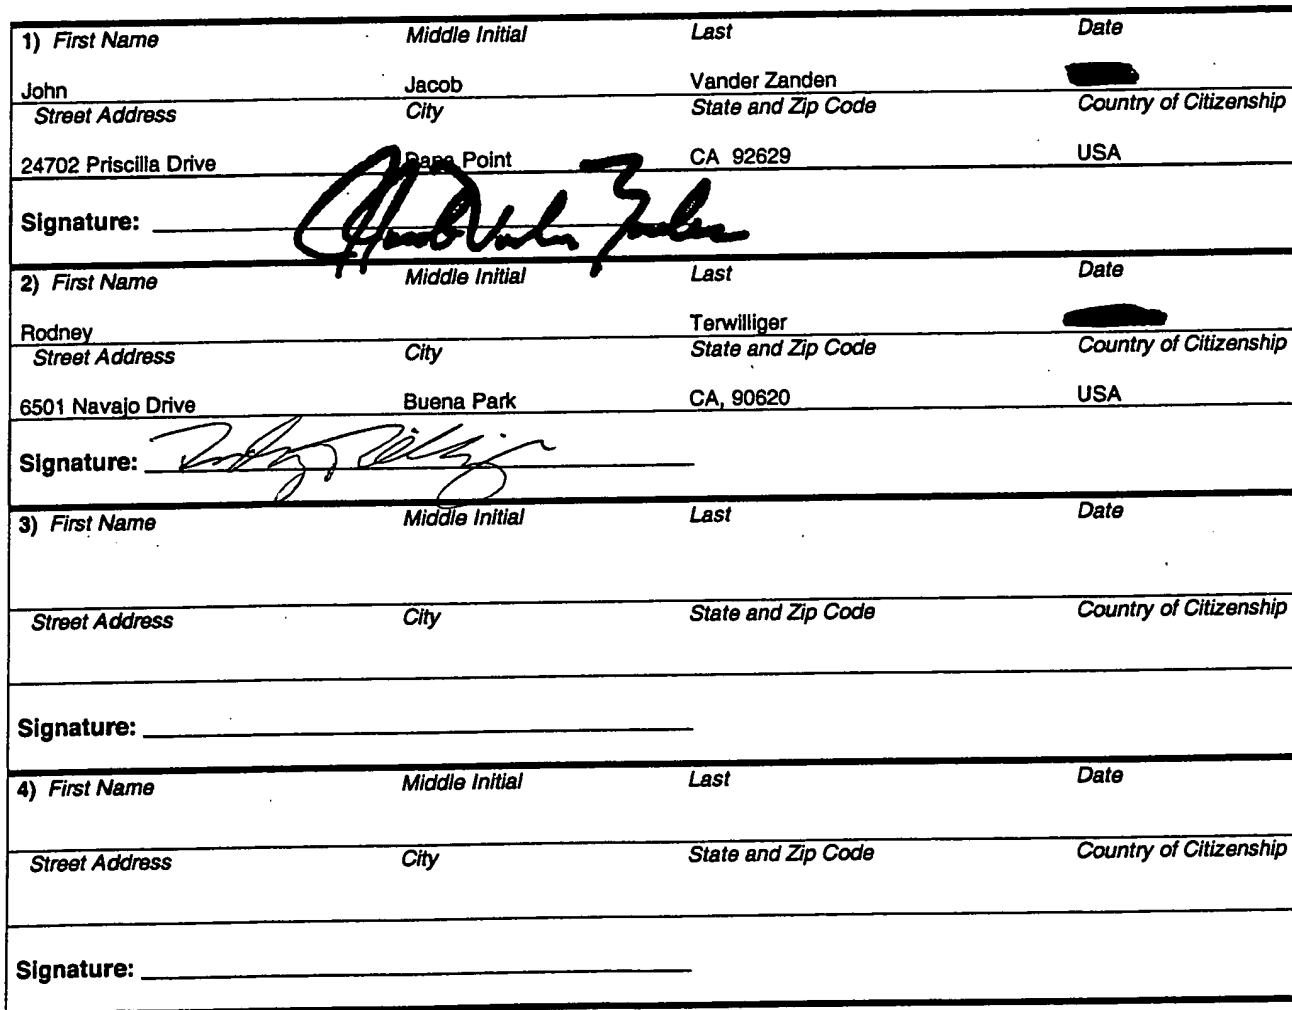 1) First Name Middle Initial Last Date
John Jacob Vander Zanden
Street Address City State and Zip Code Country of Citizenship
24702 Priscilla Drive Dana Point CA 92629 USA
Signature:
2) First Name Middle Initial Last Date
Rodney Terwilliger
Street Address City State and Zip Code Country of Citizenship
6501 Navajo Drive Buena Park CA, 90620 USA
Signature:
3) First Name Middle Initial Last Date
Street Address City State and Zip Code Country of Citizenship
Signature:
4) First Name Middle Initial Last Date
Street Address City State and Zip Code Country of Citizenship
Signature: